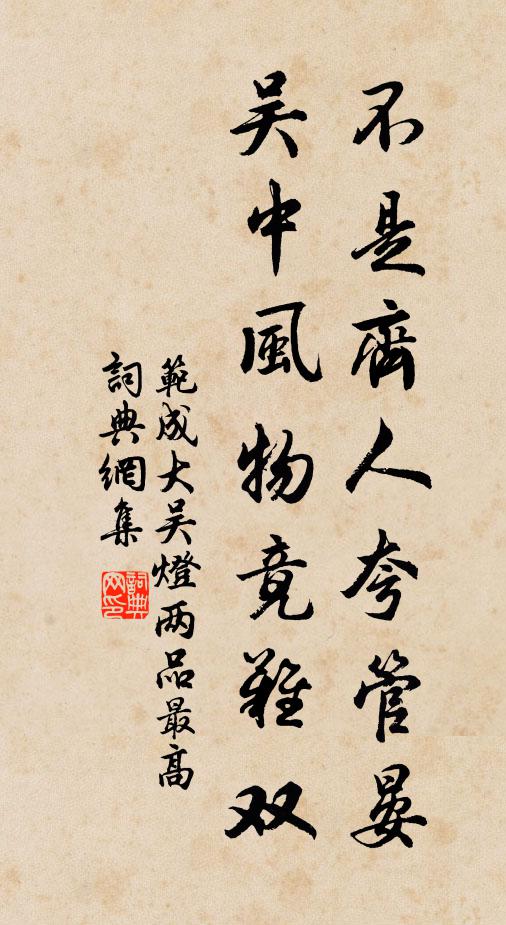 不是齊人夸管晏
吳中風物竟難双
範成大吳燈两品最高
詞典網集
詞典网印